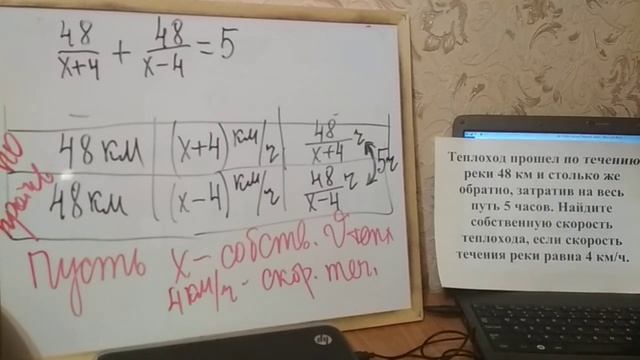 48/(x+4) + 48/(x-4) = 5
по 48 км (x+4) км/ч 48/(x+4) ч
48 км (x-4) км/ч 48/(x-4) ч 5ч
Пусть x - собств. V тепл
4 км/ч - скор. теч.
Теплоход прошел по течению
реки 48 км и столько же
обратно, затратив на весь
путь 5 часов. Найдите
собственную скорость
теплохода, если скорость
течения реки равна 4 км/ч.
hp